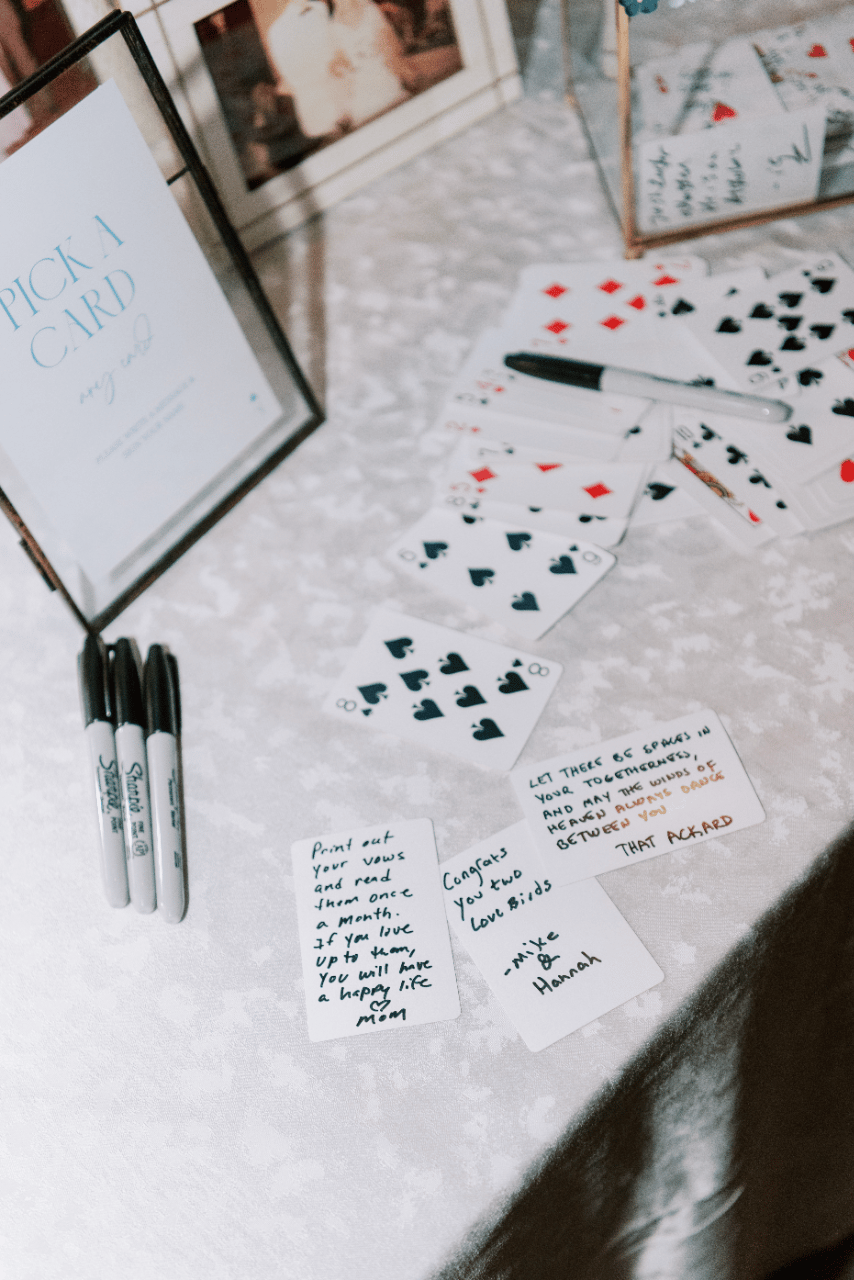 PICK A
CARD
any card
Sharpie
Sharpie
8
8
6
9
10
Print out
your vows
and read
them once
a month.
If you love
up to them,
you will have
a happy life
♡
mom
Congrats
you two
Love Birds
-Mike
&
Hannah
LET THERE BE SPACES IN
YOUR TOGETHERNESS,
AND MAY THE WINDS OF
HEAVEN ALWAYS DANCE
BETWEEN YOU
THAT ACKARD